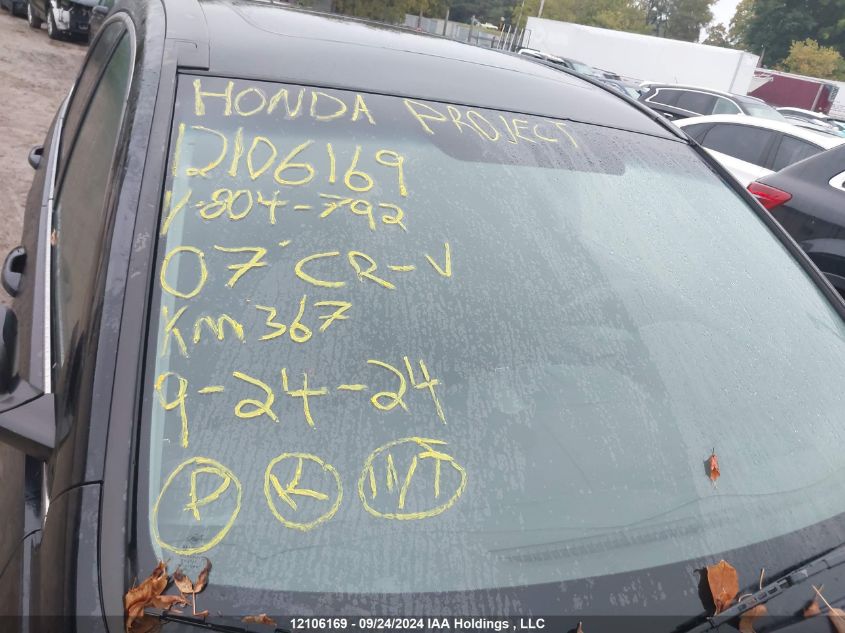 HONDA PROJECT
12106169
V-804-792
07' CR-V
KM367
9-24-24
P K N/T
12106169 - 09/24/2024 IAA Holdings , LLC